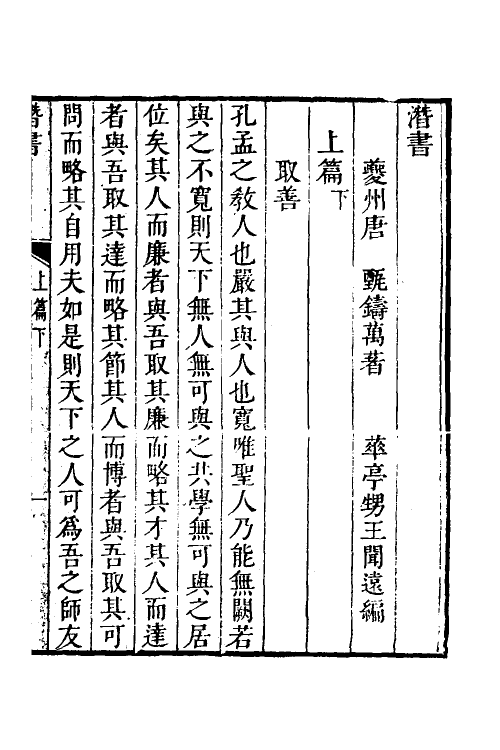 潛書
夔州唐　甄鑄萬著　　華亭甥王聞遠編
上篇下
取善
孔孟之教人也嚴其與人也寬唯聖人乃能無闕若
與之不寬則天下無人無可與之共學無可與之居
位矣其人而廉者與吾取其廉而略其才其人而達
者與吾取其達而略其節其人而博者與吾取其可
問而略其自用夫如是則天下之人可爲吾之師友
潛書
上篇下
一